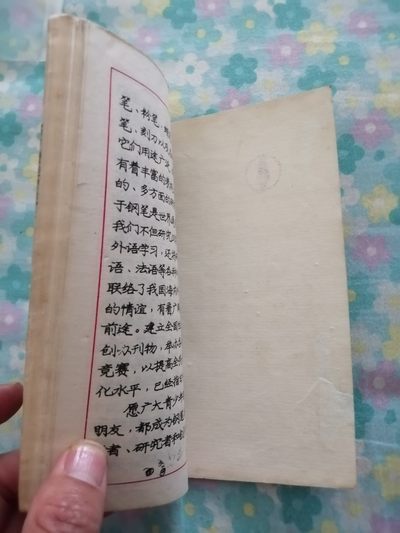 笔、粉笔、
笔、刻刀以及
它们用途广泛
有着丰富的
的、多方面的
于钢笔是世界
我们不但研究
外语学习，还
语、法语等各
联络了我国
的情谊，有着广
前途。建立全国
创办刊物，举办
竞赛，以提高全
化水平，已经指
愿广大青少年
朋友，都成为钢
者、研究者和